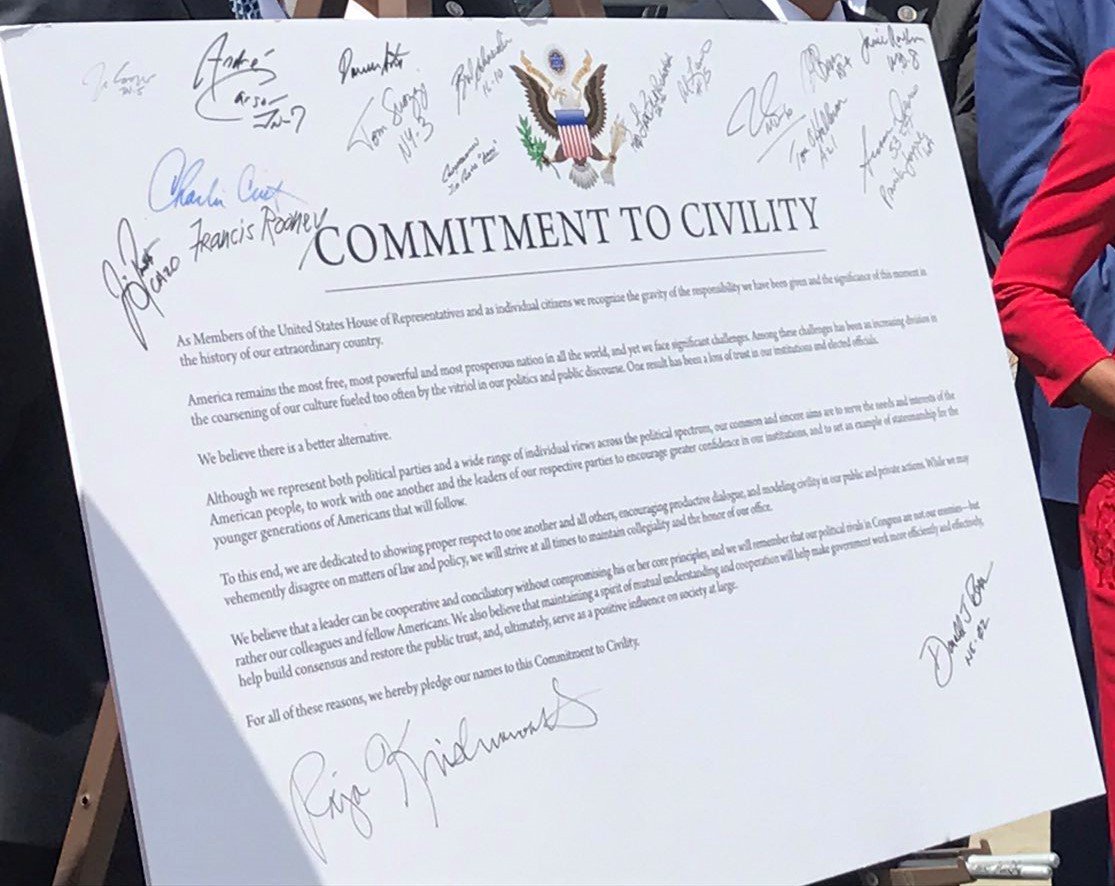 André
Carson
IN-7
Tom Suozzi
NY-3
IL-10
MD-6
Tom O'Halleran
AZ 1
MD-8
Charlie Crist
Francis Rooney
CA20
COMMITMENT TO CIVILITY
As Members of the United States House of Representatives and as individual citizens we recognise the gravity of the responsibility we have been given and the significance of this moment in
the history of our extraordinary country.
America remains the most free, most powerful and most prosperous nation in all the world, and yet we face significant challenges. Among these challenges has been an increasing division in
the coarsening of our culture fueled too often by the vitriol in our politics and public discourse. One result has been a loss of trust in our institutions and elected officials.
We believe there is a better alternative.
Although we represent both political parties and a wide range of individual views across the political spectrum, our common and sincere aims are to serve the needs and interests of the
American people, to work with one another and the leaders of our respective parties to encourage greater confidence in our institutions, and to set an example of statesmanship for the
younger generations of Americans that will follow.
To this end, we are dedicated to showing proper respect to one another and all others, encouraging productive dialogue, and modeling civility in our public and private actions. While we may
vehemently disagree on matters of law and policy, we will strive at all times to maintain collegiality and the honor of our office.
We believe that a leader can be cooperative and conciliatory without compromising his or her core principles, and we will remember that our political rivals in Congress are not our enemies—but
rather our colleagues and fellow Americans. We also believe that maintaining a spirit of mutual understanding and cooperation will help make government work more efficiently and effectively,
help build consensus and restore the public trust, and, ultimately, serve as a positive influence on society at large.
For all of these reasons, we hereby pledge our names to this Commitment to Civility.
Donald J Bacon
NE-02
Raja Krishnamoorthi